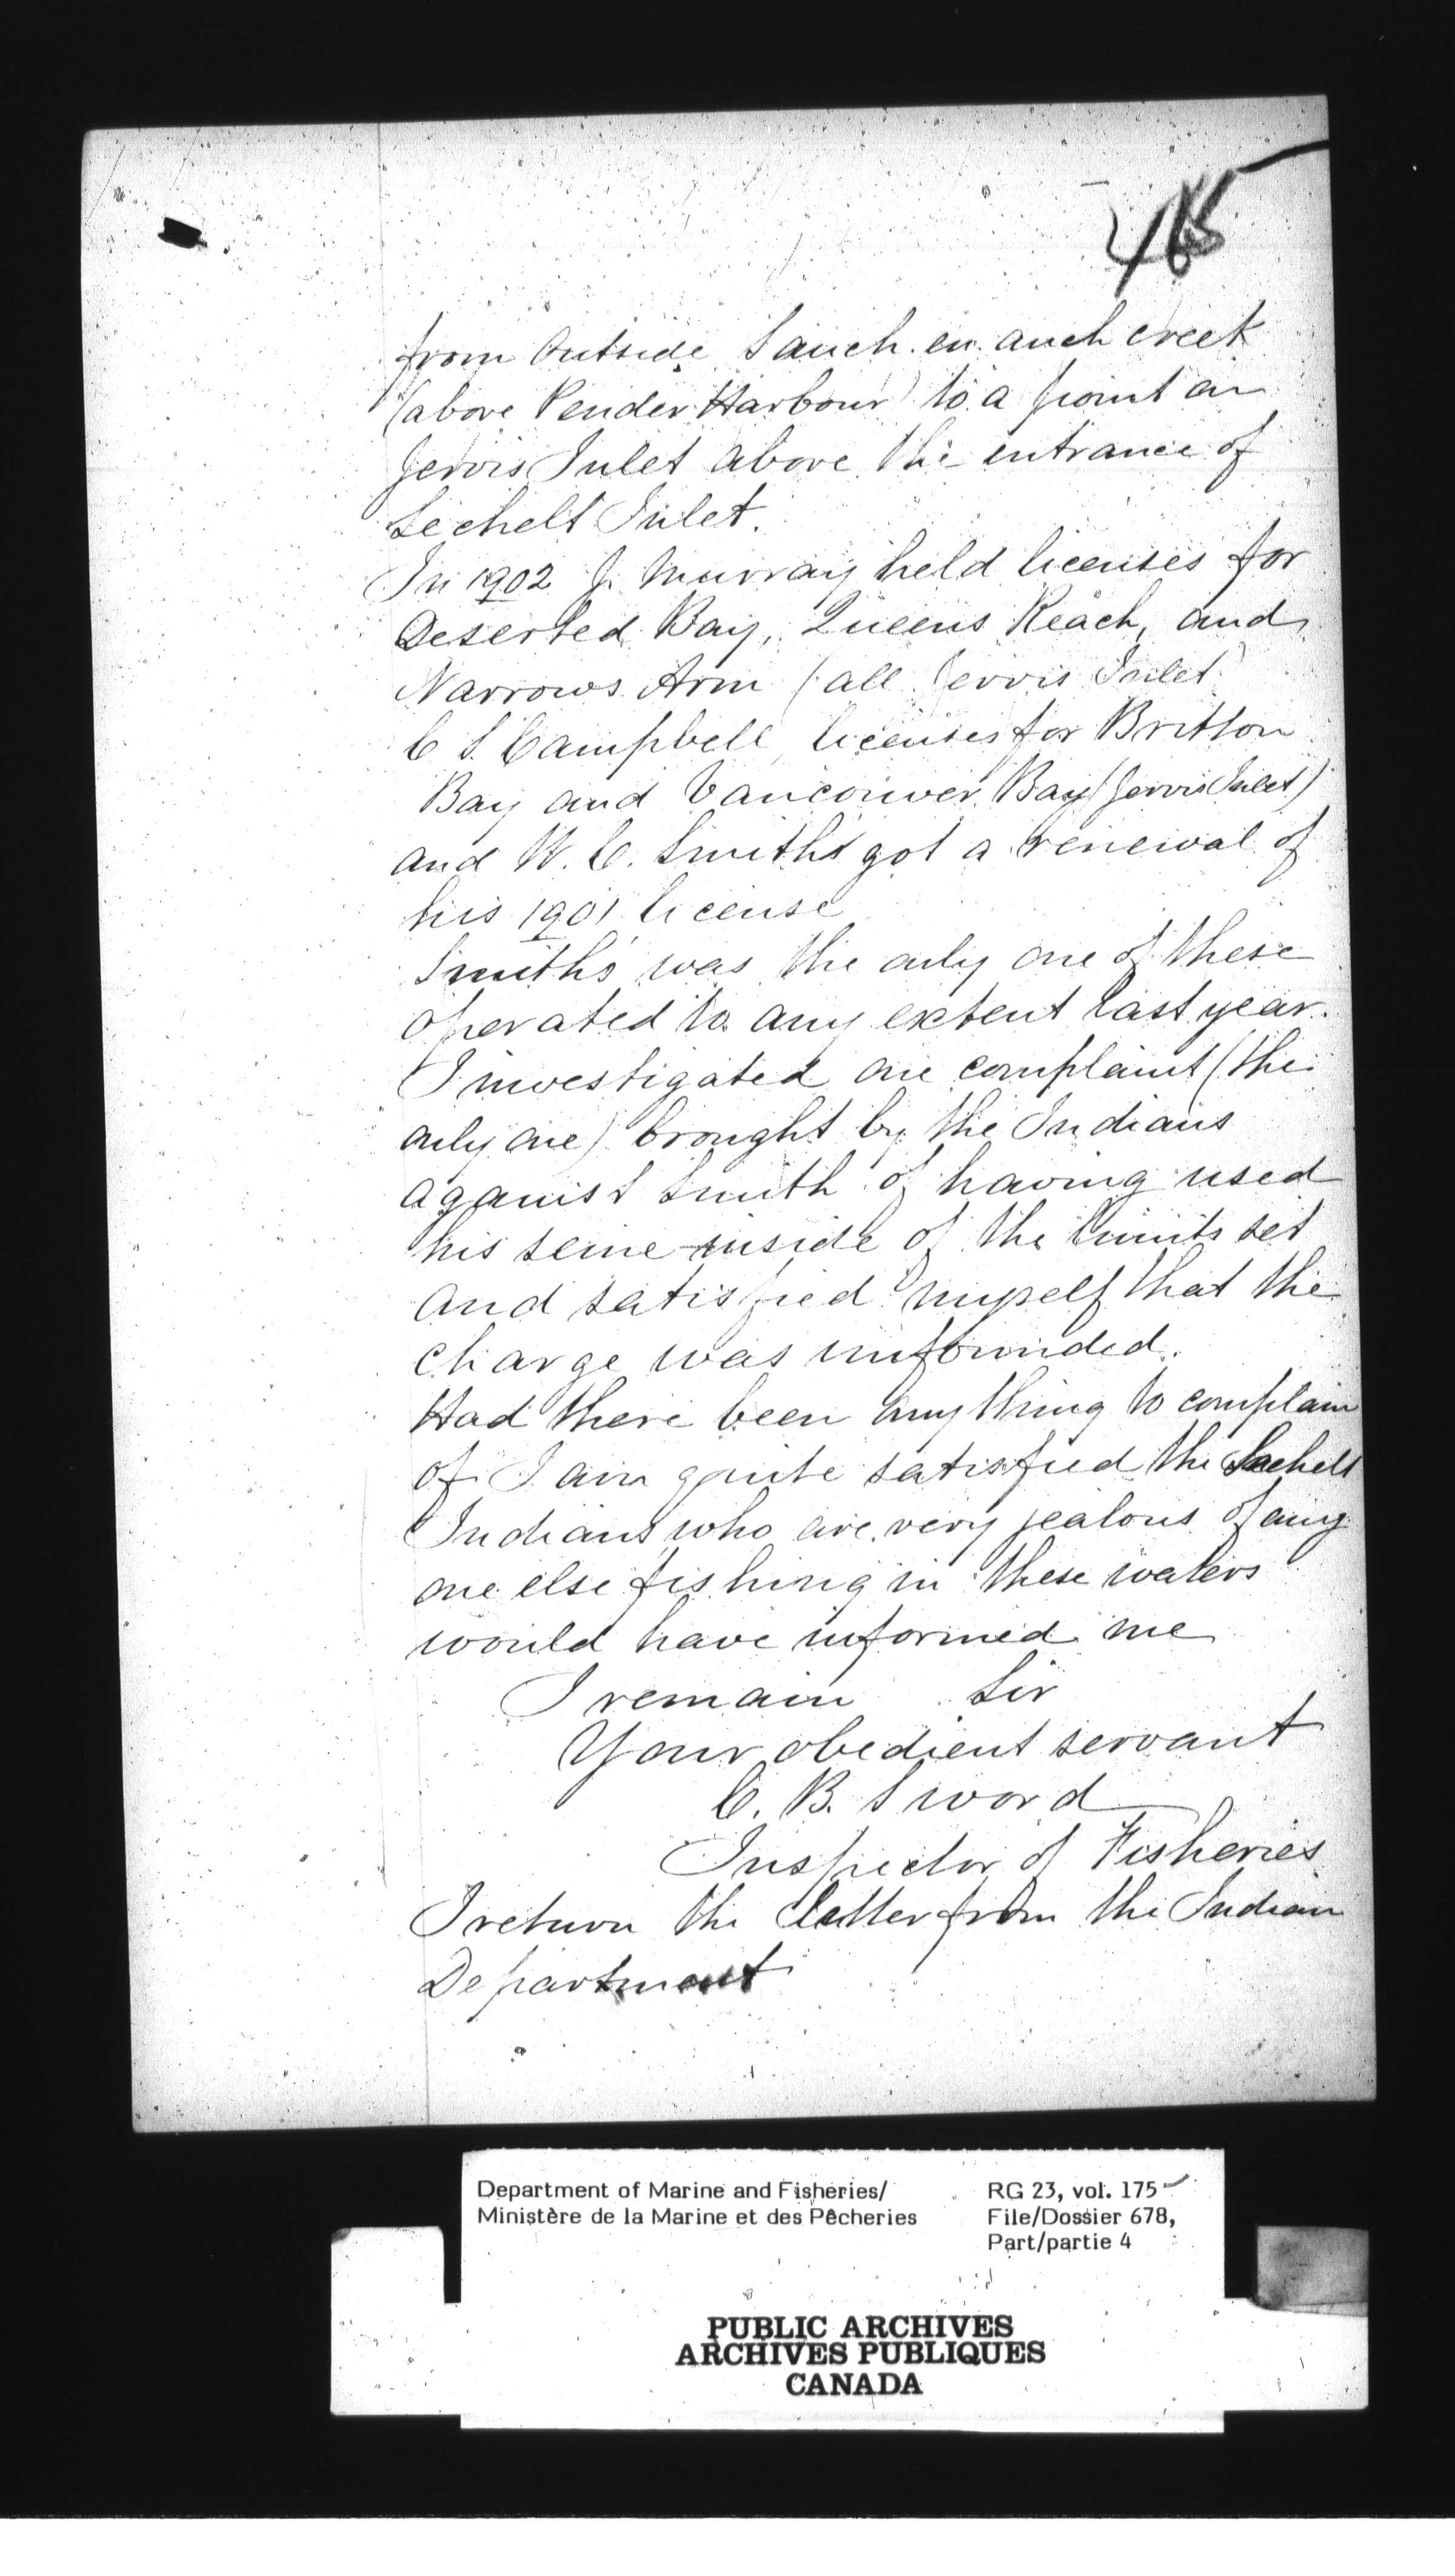 465
from outside Sauch.en.auch creek
(above Pender Harbour) to a point on
Jervis Inlet above the entrance of
Sechelt Inlet.
In 1902 J. Murray held licenses for
Deserted Bay, Queens Reach, and
Narrows Arm (all Jervis Inlet)
C S. Campbell, licenses for Britton
Bay and Vancouver Bay (Jervis Inlet)
and W. C. Smith's got a renewal of
his 1901 license
Smith's was the only one of these
operated to any extent last year.
I investigated one complaint (the
only one) brought by the Indians
against Smith of having used
his seine inside of the limits set
and satisfied myself that the
charge was unfounded.
Had there been anything to complain
of I am quite satisfied the Sechelt
Indians who are very jealous of any
one else fishing in these waters
would have informed me
I remain Sir
Your obedient servant
C. B. Sword
Inspector of Fisheries
I return the letter from the Indian
Department
Department of Marine and Fisheries/
Ministère de la Marine et des Pêcheries
RG 23, vol. 175
File/Dossier 678,
Part/partie 4
PUBLIC ARCHIVES
ARCHIVES PUBLIQUES
CANADA